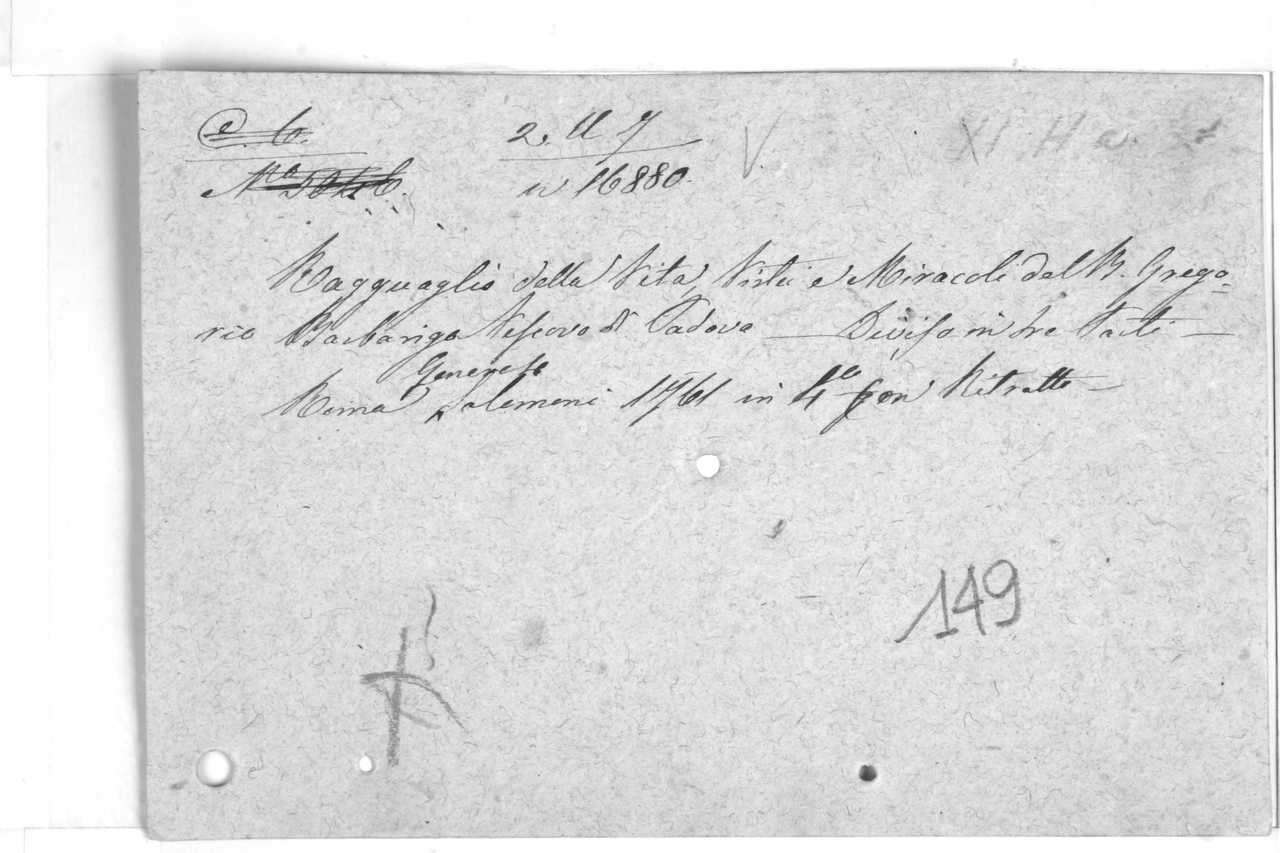 e. C. 2. U 7 V XI. H a.
No
n 16880.
Ragguaglio della Vita, Virtù e Miracoli del B. Grego-
rio Barbarigo Vescovo di Padova — Diviso in tre Parti —
Generoso
Roma Salomoni 1761 in 4to con Ritratto —
149